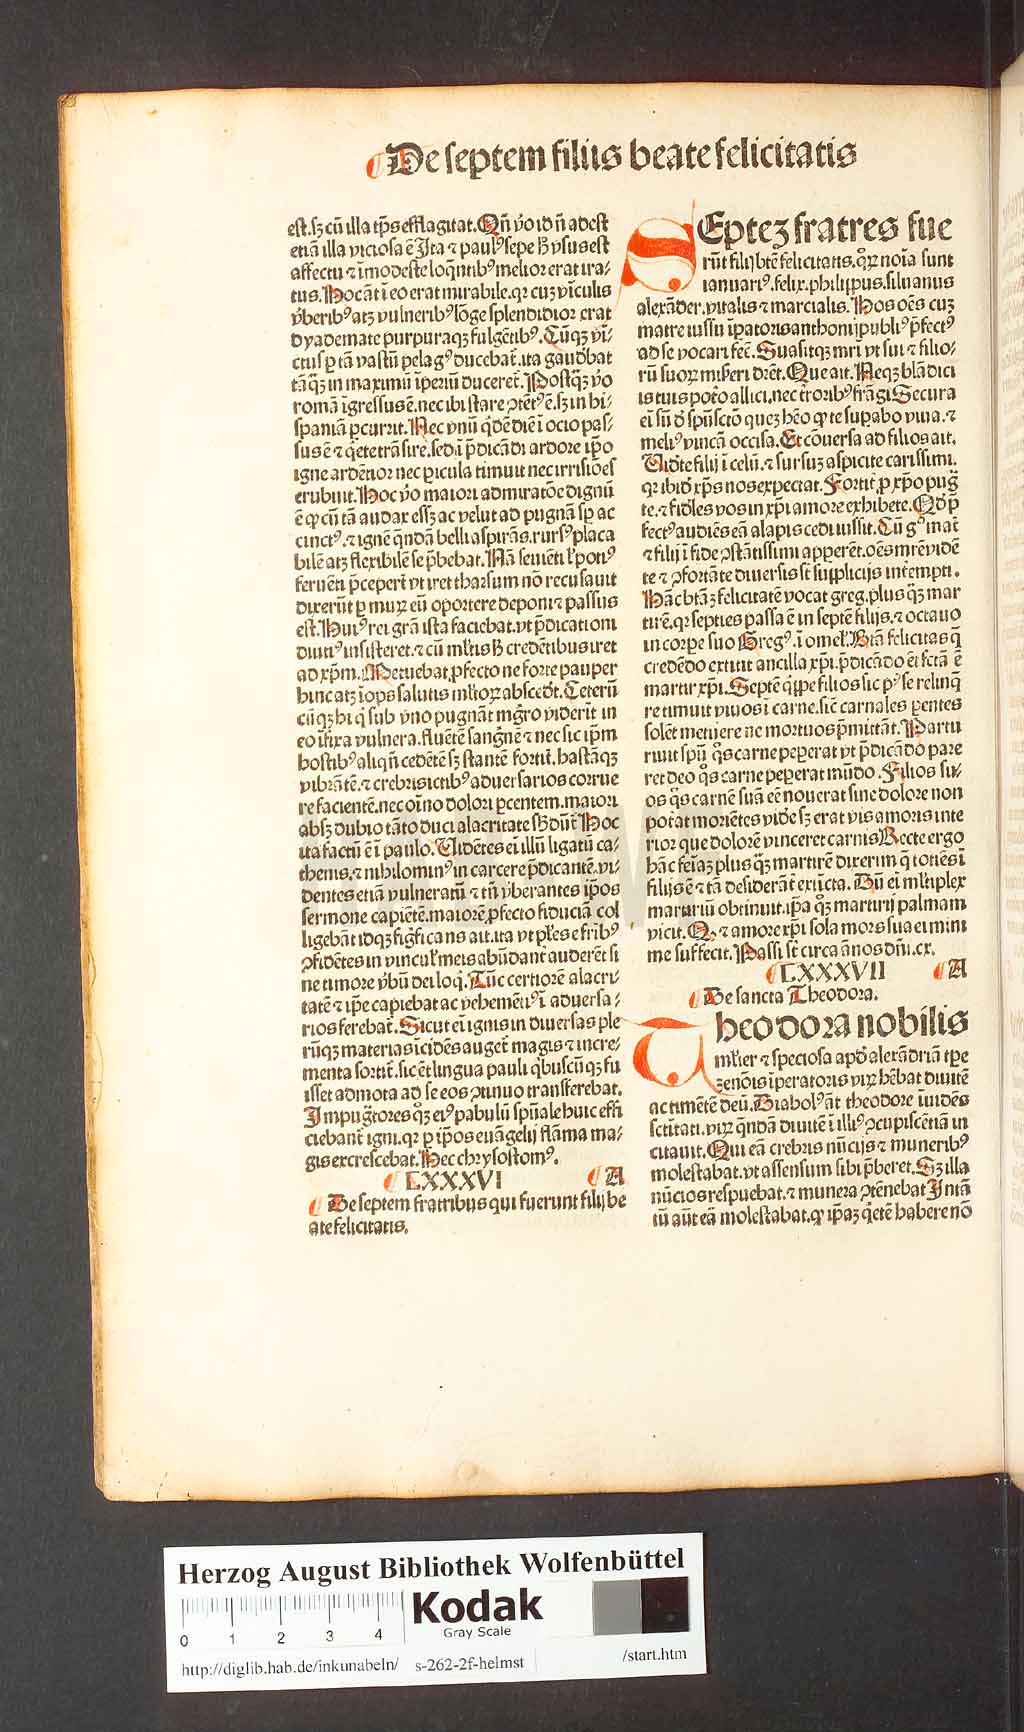 ¶ De septem filiis beate felicitatis
est. sꝫ cū illa tp̄s efflagitat. Qn̄ v̊o id n̄ adest
etiā illa viciosa ē Ita ⁊ paulꝰ sepe vsus est
affectu ⁊ īmodeste loq̄ntibꝰ melior erat ira⸗
tus. Hoc āt ī eo erat mirabile. qꝛ cuꝫ vīculis
v̄beribꝰ atꝫ vulneribꝰ lōge splendidior erat
dyademate purpuraqꝫ fulgētibꝰ. Cūqꝫ vi⸗
ctus ꝑ tā vastū pelagꝰ ducebat̄. ita gaudbat
tāq̄ꝫ in maximū īperiū duceret̄. Postq̄ꝫ v̊o
romā īgressus ē. nec ibi stare ꝯtētꝰ ē. sꝫ in hi⸗
spaniā ꝑcurrit. Nec vnū q̇dē diē ī ocio pas⸗
sus ē ⁊ q̇ete trāsire. sed ī p̄dicādi ardore ip̄o
igne ardētior nec ꝑicula timuit nec irrisiōes
erubuit. Hoc v̊o maiori admiratōe dignū
ē ꝙ cū tā audax essꝫ ac velut ad pugnā sp̄ ac
cinctꝰ. ⁊ ignē q̄ndā belli aspirās. rursꝰ placa
bilē atꝫ flexibilē se p̄bebat. Nā seuiēti potiꝰ
feruēti p̄ceperūt vt iret tharsum nō recusauit
dixerūt ꝑ muꝝ eū oportere deponi ⁊ passus
est. Huiꝰ rei gr̄a ista faciebat. vt p̄dicationi
diutiꝰ insisteret. ⁊ cū ml̄tis credētibus iret
ad xp̄m. Metuebat ꝓfecto ne forte pauper
hinc atꝫ īops salutis ml̄toꝝ absced̄t. Ceterū
cū qꝫ hi q̇ sub vno pugnāt mgr̄o viderīt in
eo īfixa vulnera. fluētē sangnē ⁊ nec sic ip̄m
hostibꝰ aliqn̄ cedētē sꝫ stantē fortiꝉ. hastāqꝫ
vibrātē. ⁊ crebris ictibꝰ aduersarios corrue
re facientē. nec oīno dolori ꝑcentem. maiori
absꝫ dubio tāto duci alacritate Hoc
ita factū ē ī paulo. Vidētes ei illū ligatū ca⸗
thenis. ⁊ nihilominꝰ in carcere p̄dicantē. vi⸗
dentes etiā vulneratū ⁊ tn̄ v̄berantes ip̄os
sermone capiētē. maiorē ꝓfecto fiduciā col
ligebāt idqꝫ figficans ait. ita vt pl̄es e fribꝰ
ꝯfidētes in vincul̄ meis abūdant auderēt si
ne timore v̄bū dei loq̇. Tūc certiorē alacri⸗
tatē ⁊ ip̄e capiebat ac vehemētiꝰ ī aduersa⸗
rios ferebat̄. Sicut ei ignis in diuersas ple
rūqꝫ materias īcidēs auget̄ magis ⁊ incre⸗
menta sortit̄. sic et lingua pauli q̇buscūqꝫ fu
isset admota ad se eos ꝯtinuo transferebat.
Impugtores q̊ꝫ eiꝰ pabulū sp̄uale huic effi
ciebant̄ igni. qꝛ ꝑ ip̄os euāgelij flāma ma⸗
gis excrescebat. Hec chrysostomꝰ.
¶ LXXXVI ¶ A
¶ De septem fratribus qui fuerunt filij be
ate felicitatis.
SEptez fratres fue
rūt filij btē felicitatis. q̊ꝝ noīa sunt
ianuariꝰ. felix. philippus. siluanus
alexāder. vitalis ⁊ marcialis. Hos oēs cuꝫ
matre iussu īpatoris anthonij publiꝰ p̄fectꝰ
ad se vocari fec̄. Suasitqꝫ mr̄i vt sui ⁊ filio⸗
rū suoꝝ miseri dr̄et. Que ait. Neqꝫ blādici
is tuis poto allici, nec t̄roribꝰ frāgi Secura
ei sū d̄ spūscto quez hēo ꝙ te suꝑabo viua. ⁊
meliꝰ vincā occisa. Et cōuersa ad filios ait.
Vidte filij ī celū. ⁊ sursuꝫ aspicite carissimi.
qꝛ ibid xp̄s nos expectat. Fortit̄ ꝓ xp̄o pug
te. ⁊ fidles vos in xp̄i amore exhibete. Qd p̄
fectꝰ audiēs eā alapis cedi iussit. Cū gͦ mat̄
⁊ filij ī fide ꝯstātissimi apperēt. oēs mr̄e vidē
te ⁊ ꝯfortāte diuersis st̄ supplicijs intēmpti.
Hāc btāꝫ felicitatē vocat greg. plus q̄ꝫ mar
tirē. qꝛ septies passa ē in septē filijs. ⁊ octauo
in corpe suo Gregꝰ. ī omel. Btā felicitas q̄
credēdo extitit ancilla xp̄i. p̄dicādo ei fctā ē
martir xp̄i. Septē q̇ppe filios sic pꝰ se relinq̄
re timuit viuos ī carne. sic carnales ꝑentes
solēt metuere ne mortuos p̄mittāt. Partu
riuit spū q̊s carne peꝑerat vt p̄dicādo pare
ret deo q̊s carne peꝑerat mūdo. Filios su⸗
os q̊s carnē suā eē nouerat sine dolore non
poterat moriētes vide sꝫ erat vis amoris inte
rior que dolorē vinceret carnis Recte ergo
hāc feīaꝫ plus q̄ꝫ martirē dixerim q̄ totiēs ī
filijs ē ⁊ tā desiderāt̄ exticta. Dū ei ml̄tiplex
martiriū obtinuit. ip̄a q̊ꝫ martirij palmam
vicit. Qꝛ ⁊ amore xp̄i sola mors sua ei mini
me suffecit. Passi st̄ circa ānos dn̄i. cx.
¶ LXXXVII ¶ A
¶ De sancta Theodora.
THeodora nobilis
ml̄ier ⁊ speciosa apd alexādriā tꝑe
zenōis īperatoris viꝝ hēbat diuitē
ac timētē deū. Diabolꝰ āt theodore īuidēs
sctītati. viꝝ q̄ndā diuitē ī illiꝰ ꝯcupiscētiā in
citauit. Qui eā crebris nūcijs ⁊ muneribꝰ
molestabat. vt assensum sibi p̄beret. Sꝫ illa
nūcios respuebat. ⁊ munera ꝯtēnebat Intā
tū aūt eā molestabat. ꝙ ip̄aꝫ q̇etē habere nō
Herzog August Bibliothek Wolfenbüttel
0 1 2 3 4
Kodak
Gray Scale
http://diglib.hab.de/inkunabeln/ s-262-2f-helmst /start.htm